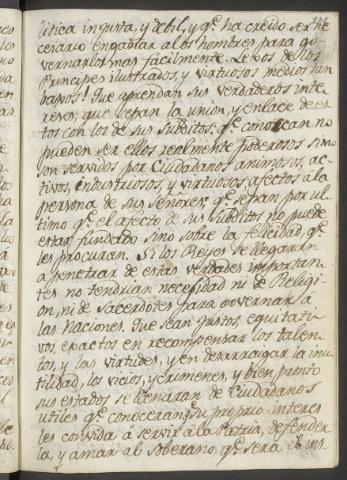 litica injusta, y debil, y q.e ha creido ser ne
cesario engañar a los hombres para go
vernarlos mas facilmente. Lexos de los
Principes ilustrados, y virtuosos medios tan
baxos! Que aprendan sus verdaderos inte
reses, que sepan la union, y enlace de es
tos con los de sus subditos; q.e conozcan no
pueden ser ellos realmente poderosos sino
son servidos por Ciudadanos animosos, ac
tivos, industriosos, y virtuosos, afectos á la
persona de sus señores: q.e sepan por ul
timo q.e el afecto de sus subditos no puede
estar fundado sino sobre la felicidad, q.e
les procuran. Si los Reyes se llegaran
a penetrar de estas verdades importan
tes no tendrian necesidad ni de Religi
on, ni de sacerdotes para governar a
las Naciones. Que sean justos, equitati
vos, exactos en recompensar los talen
tos, y las virtudes, y en desarraigar la inu
tilidad, los vicios, y crimenes, y bien pronto
sus estados se llenaran de Ciudadanos
utiles q.e conoceran, su proprio interes
les convida á servir á la Patria, defender
la, y amar al soberano, q.e sera el ins